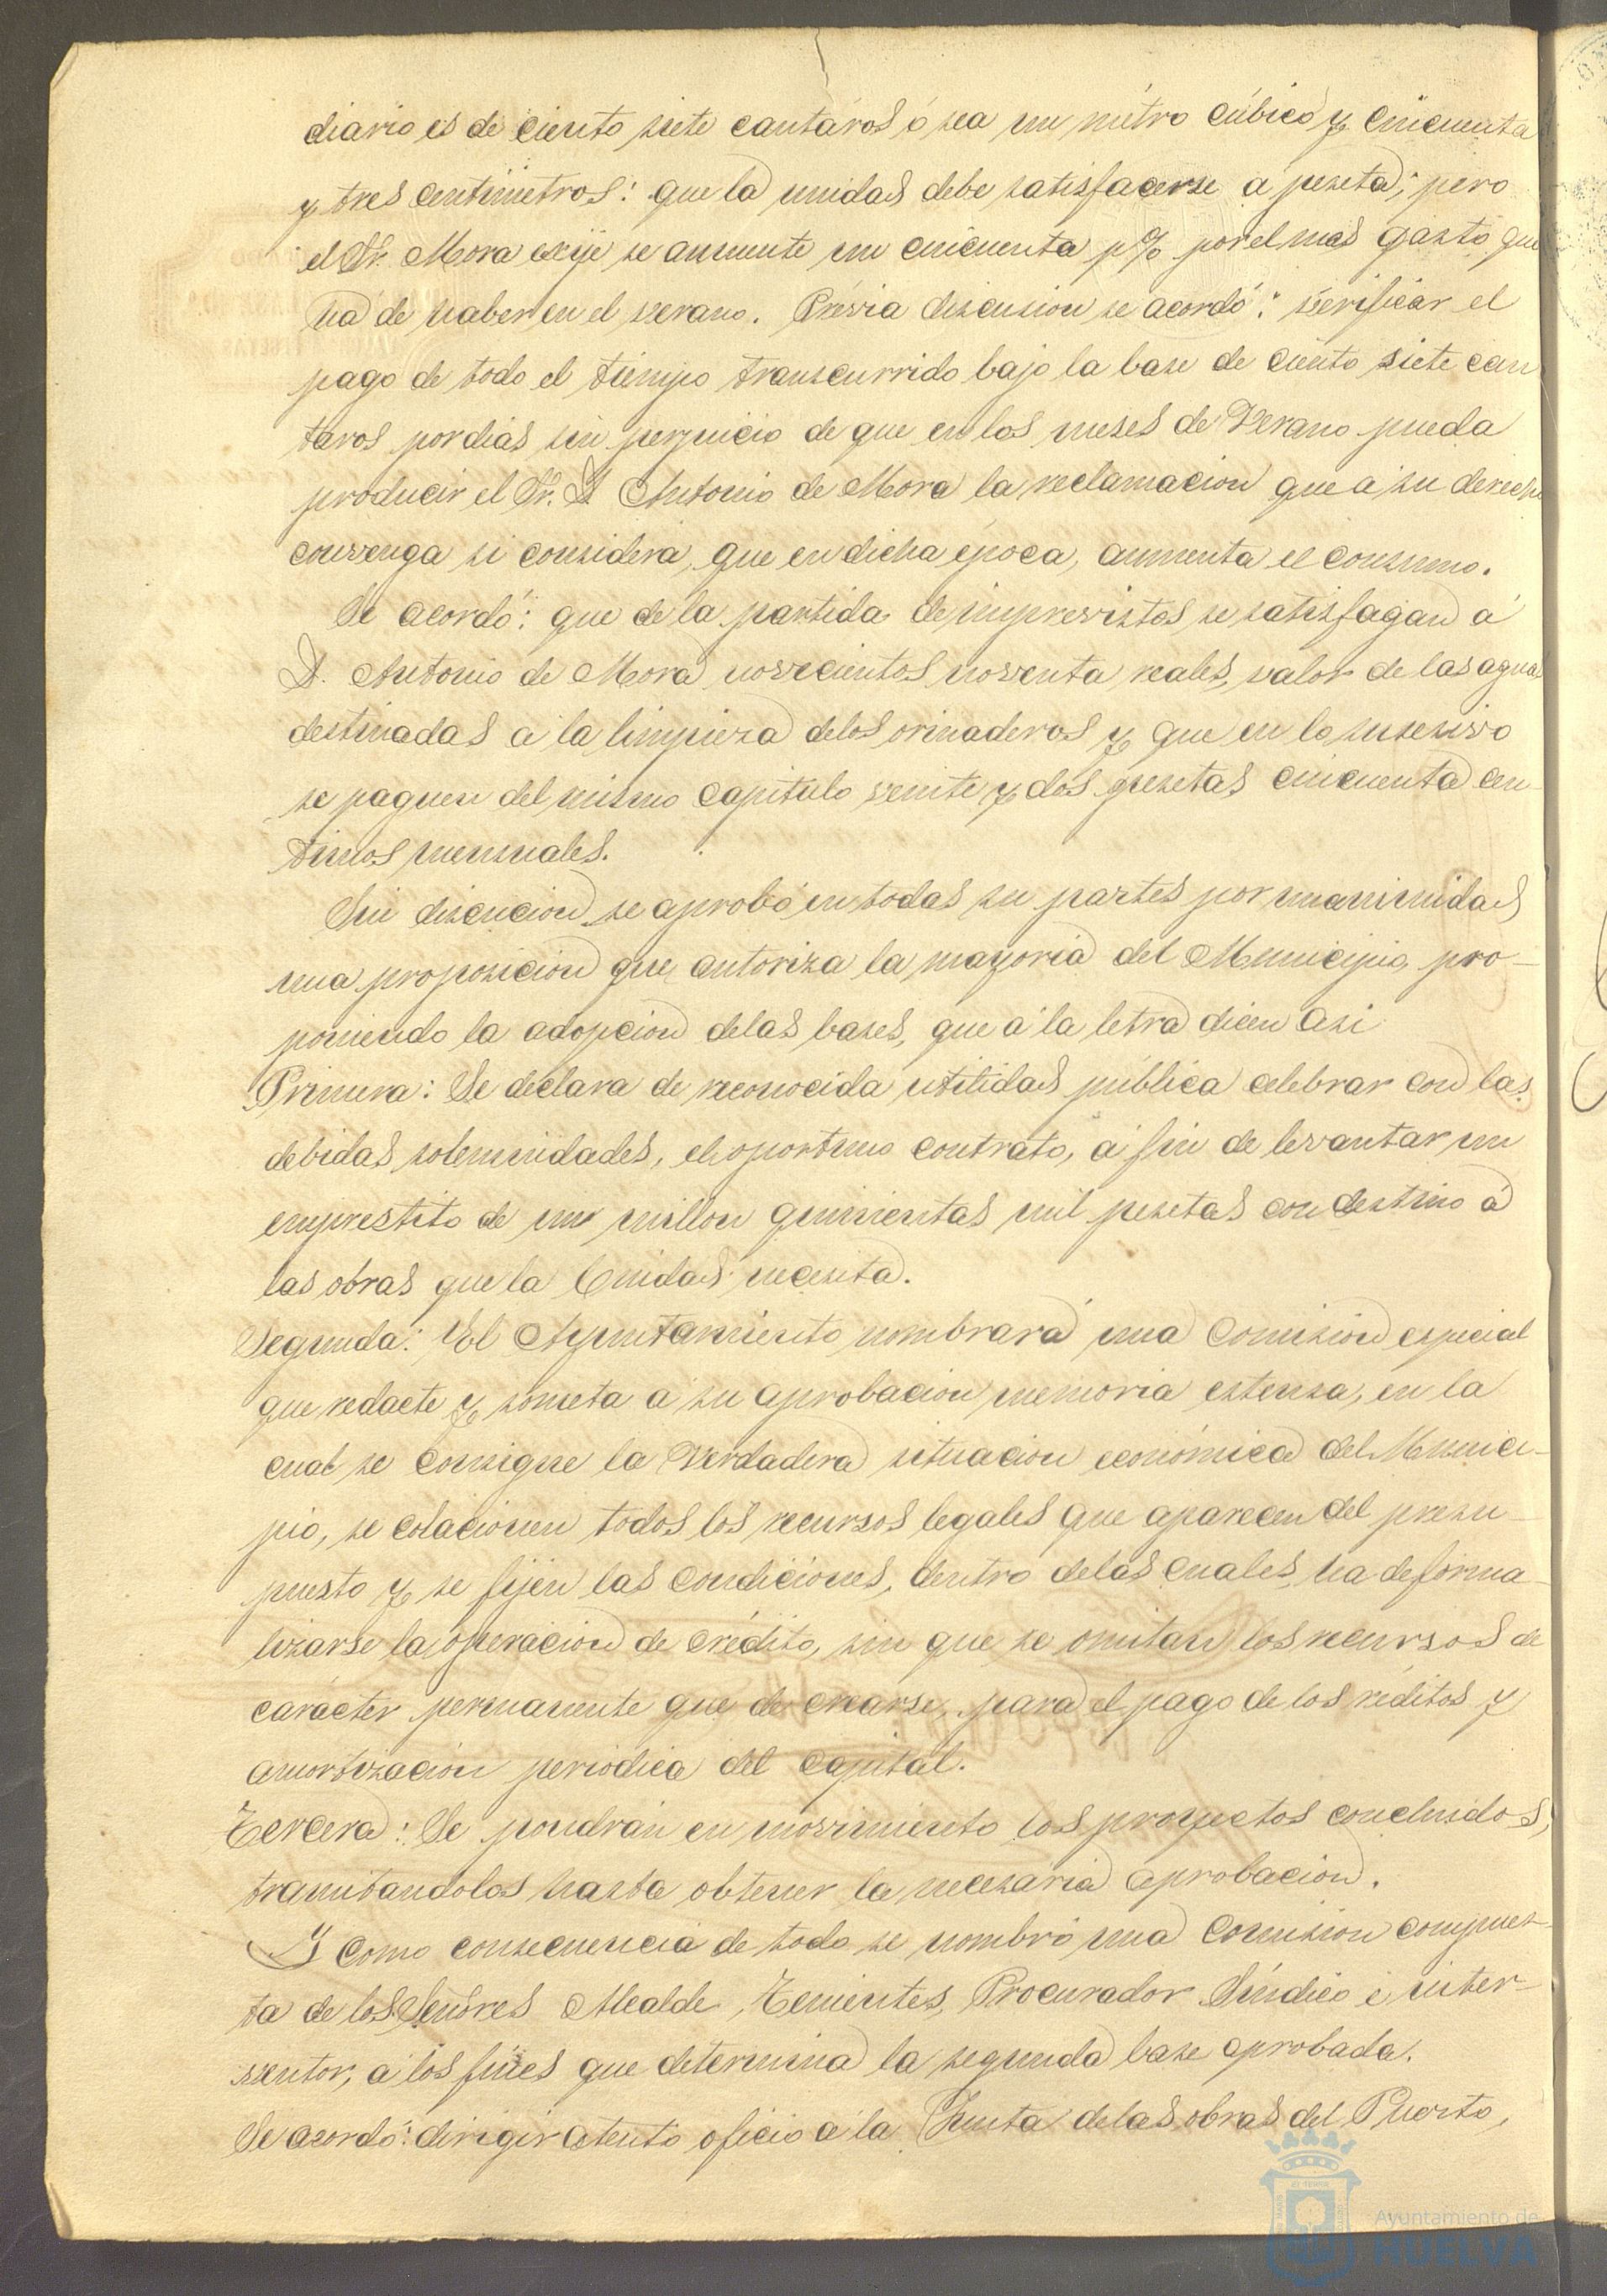 diario es de ciento siete cantáros ó sea un métro cúbico y cincuenta
y tres centímetros: que la unidad debe satisfacerse a peseta; pero
el Sr. Mora exije se aumente un cincuenta p% por el mas gasto que
ha de haber en el verano. Prévia discusion se acordó: verificar el
pago de todo el tiempo transcurrido bajo la base de ciento siete can
taros por dias sin perjuicio de que en los meses de Verano pueda
producir el Sr. D Antonio de Mora la reclamacion que a su derecho
convenga si considera, que en dicha época, aumenta el consumo.
Se acordó: que de la partida de imprevistos se satisfagan á
D. Antonio de Mora novecientos noventa reales, valor de las aguas
destinadas a la limpieza delos orinaderos y que en lo susesivo
se paguen del mismo capítulo veinte y dos pesetas cincuenta cen
timos mensuales.
Sin discucion se aprobó en todas su partes por unanimidad
una proposicion que autoriza la mayoria del Municipio, pro-
poniendo la adopcion delas bases, que a la letra dicen asi
Primera: Se declara de reconocida utilidad pública celebrar con las
debidas solemnidades, el oportuno contrato, a fin de levantar un
emprestito de un millon quinientas mil pesetas con destino á
las obras que la Ciudad necesita.
Segunda: El Ayuntamiento nombrará una Comision especial
que redacte y someta a su aprobacion memoria estensa, en la
cual se consigne la Verdadera situacion económica del Munici-
pio, se colacionen todos los recursos legales que aparecen del presu-
puesto y se fijen las condiciones, dentro delas cuales, ha de forma-
lizarse la operacion de crédito, sin que se omitan los recursos de
carácter permanente que de crearse, para el pago de los réditos y
amortizacion periódica del capital.
Tercera: Se pondrán en movimiento los proyectos concluidos,
tramitandolos hasta obtener la necesaria aprobacion.
Y como consecuencia de todo se nombró una Comision compues-
ta de los Señores Alcalde, Tenientes, Procurador Síndico e inter-
ventor, a los fines que determina la segunda base aprobada.
Se acordó: dirigir atento oficio a la Junta delas obras del Puerto,
Ayuntamiento de
HUELVA